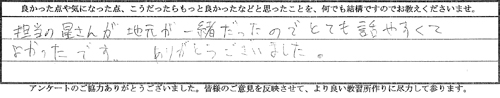 良かった点や気になった点、こうだったらもっと良かったなどと思ったことを、何でも結構ですのでお教えくださいませ。
担当の星さんが地元が一緒だったのでとても話やすくて
よかったです。 ありがとうございました。
アンケートのご協力ありがとうございました。皆様のご意見を反映させて、より良い教習所作りに尽力して参ります。